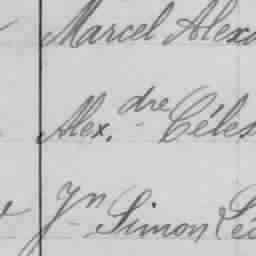 Marcel Alex
Alex.dre Céles
Jn Simon Lé